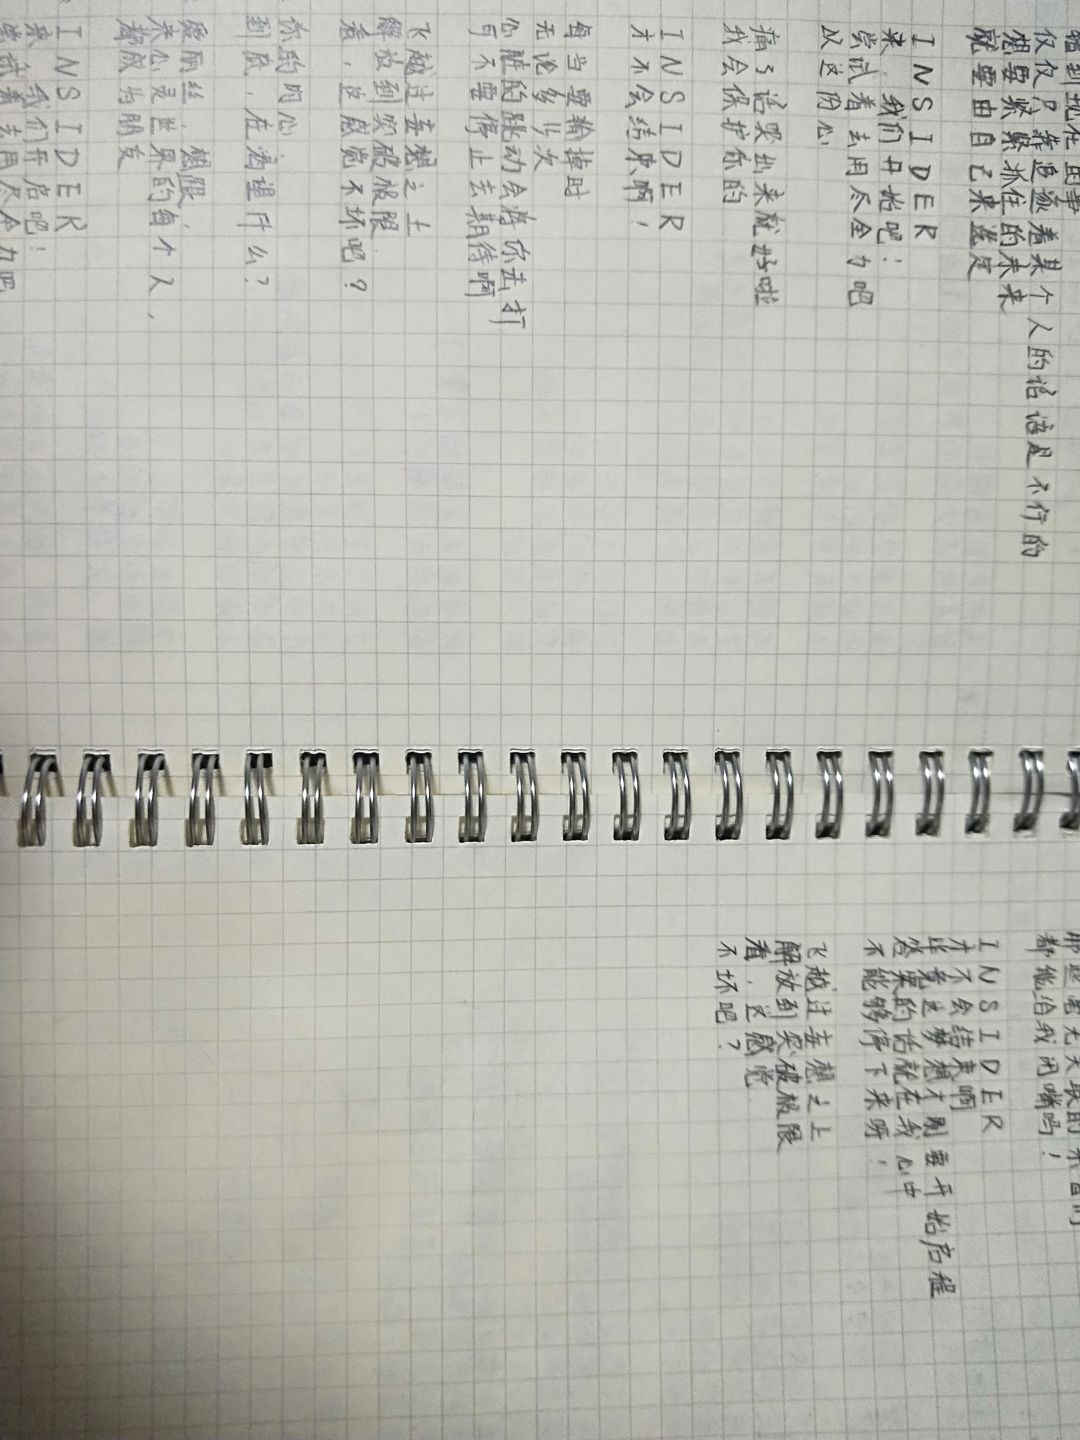 仅仅只靠追逐着某个人的话语是不行的
想要紧紧抓住的未来
就要由自己来选定
INSIDER
来，我们开始吧！
尝试着去用尽全力吧
以这份心
痛了话哭出来就好啦
我会保护你的
INSIDER
才不会结束啊！
每当要输掉时
无论多少次
心脏的跳动会将你去打
可不要停止去期待啊
飞越过妄想之上
解放到突破极限
看，这感觉不坏吧？
你的内心
到底，在渴望什么？
来心灵世界的每个人，
都成为朋友
INSIDER
来，我们开启吧！
都能给我闭嘴吗！
INSIDER
才不会结束啊
毕竟这梦想才刚要开始启程
答案的话就在我心中
不能够停下来呀！
飞越过妄想之上
解放到突破极限
看，这感觉
不坏吧？